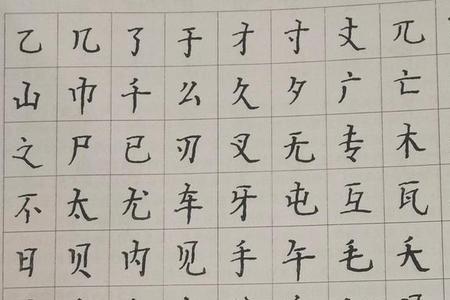 乙 几 了 于 才 寸 丈 兀
山 巾 千 么 久 夕 广 亡
之 尸 已 刃 叉 无 专 木
不 太 尤 车 牙 屯 互 瓦
日 贝 内 见 手 午 毛 夭